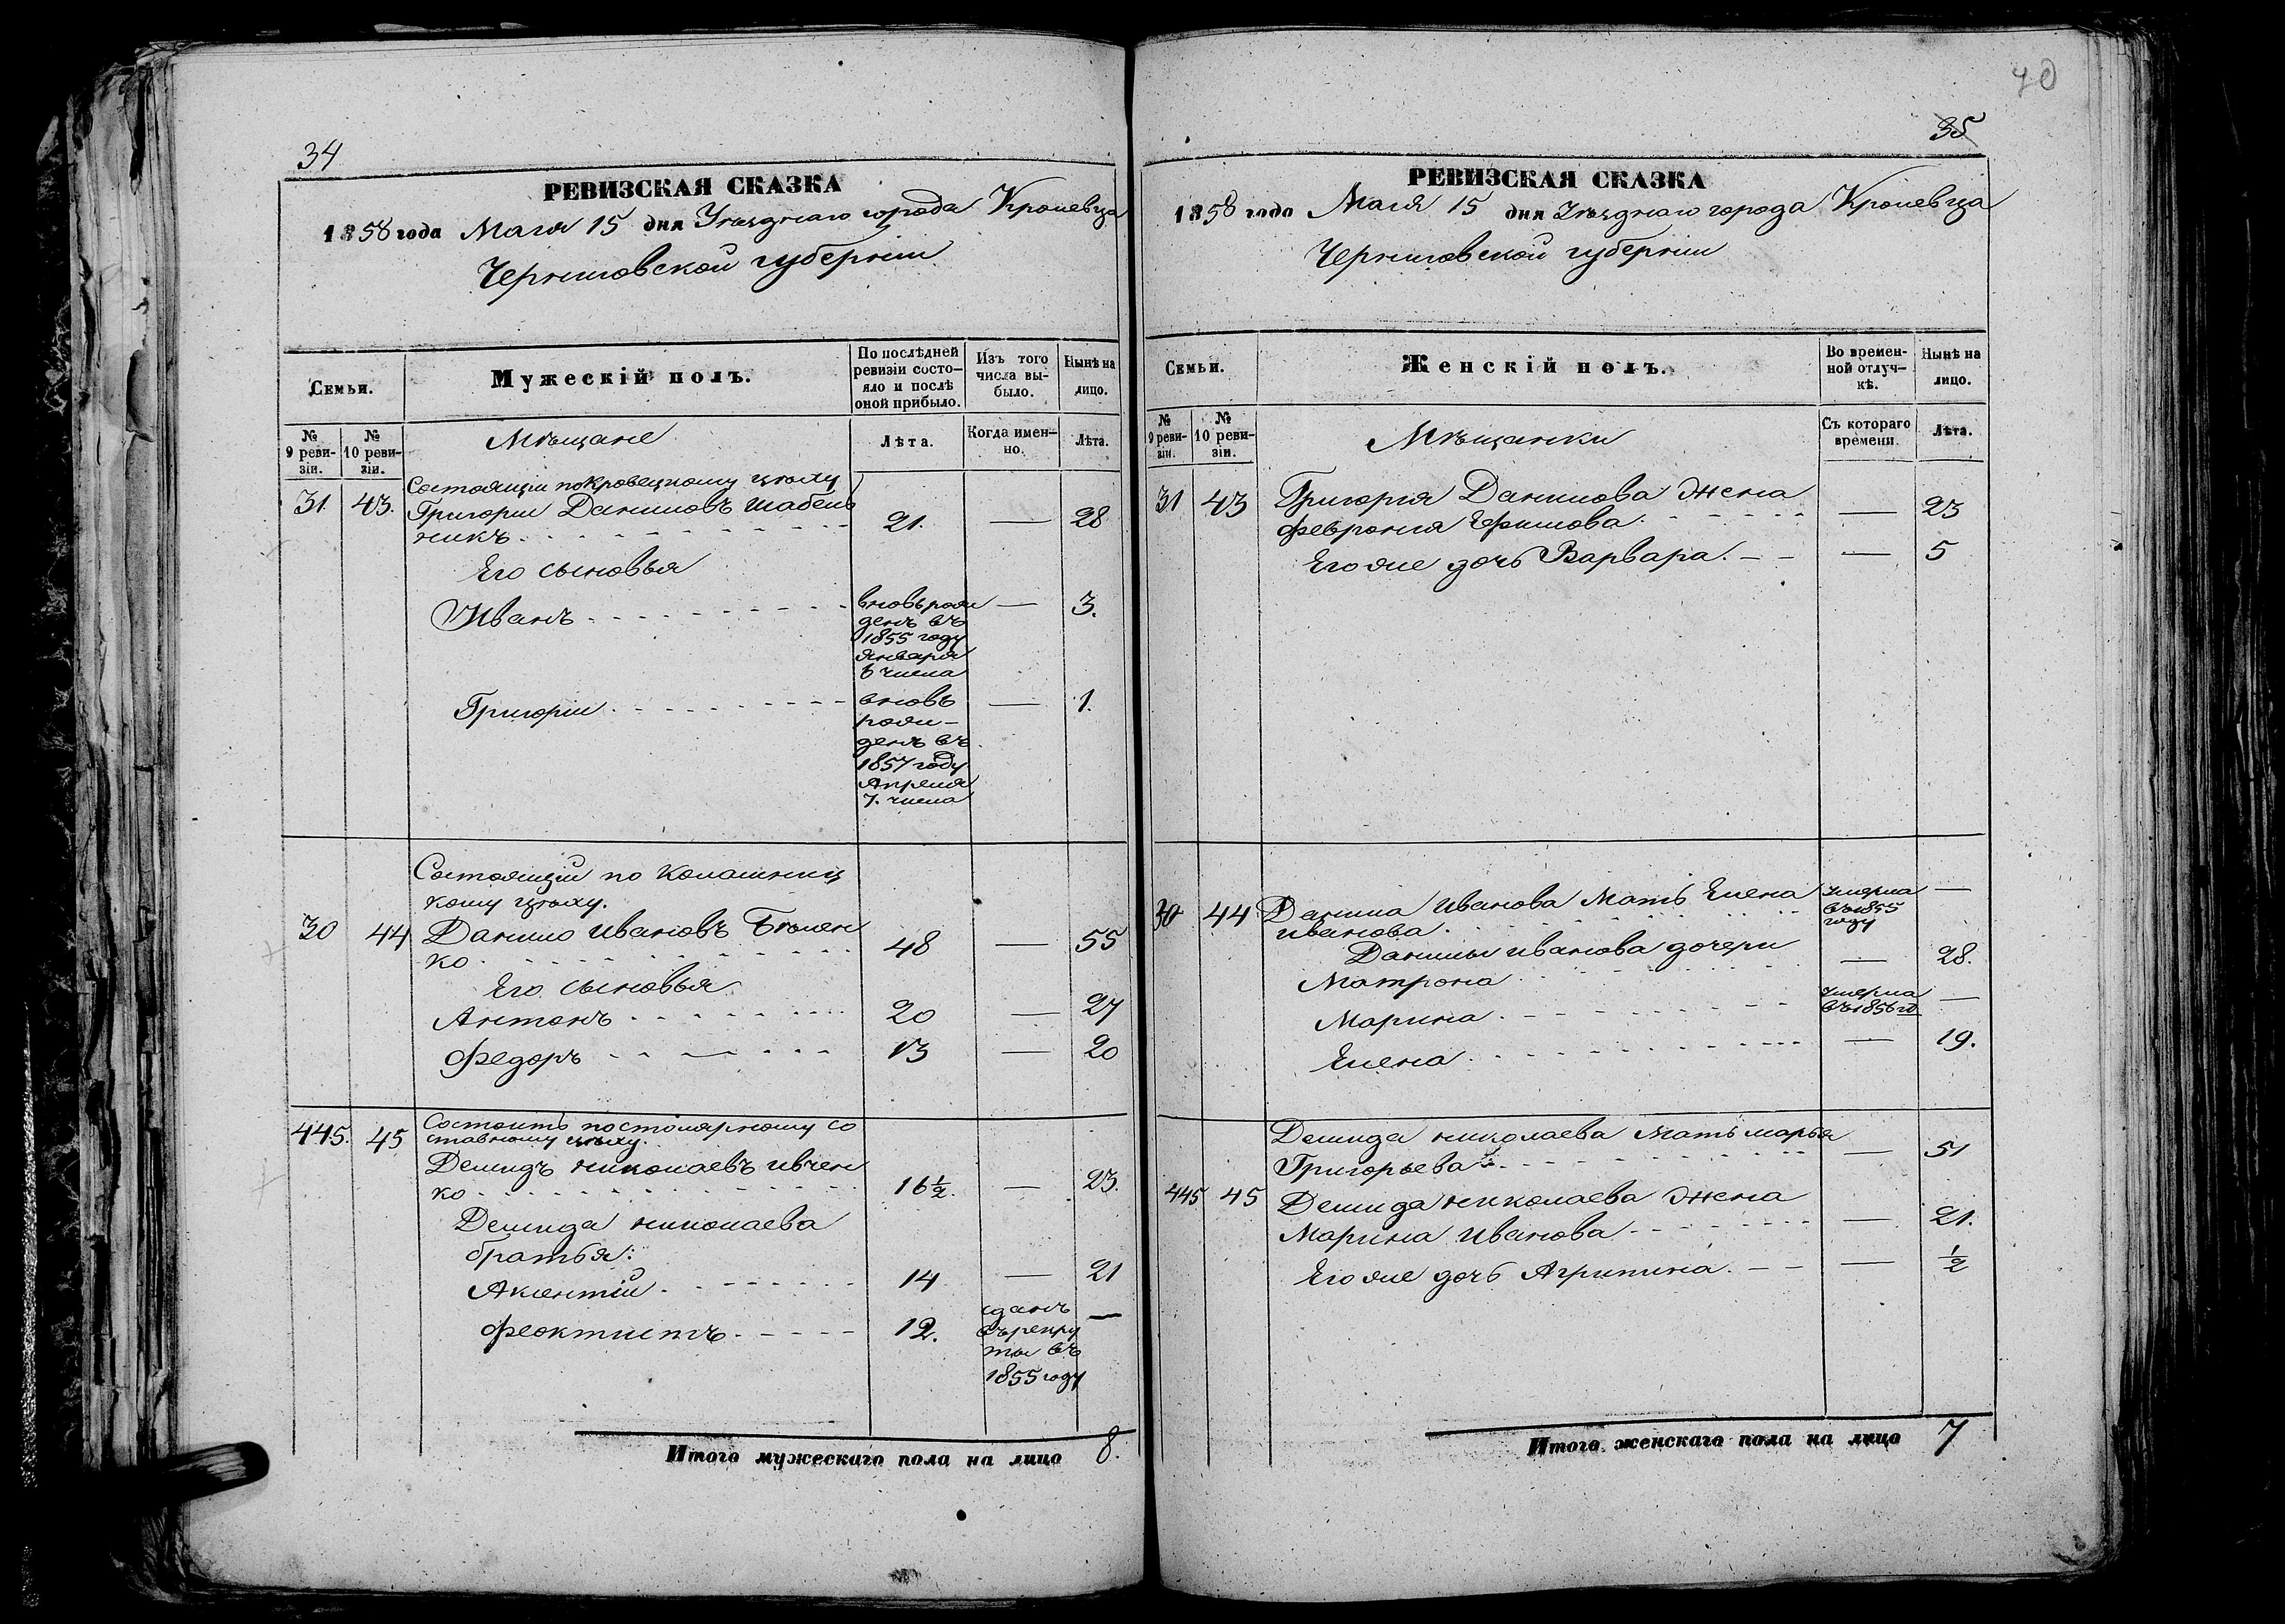 34
РЕВИЗСКАЯ СКАЗКА
1858 года Маія 15 дня Уѣзднаго города Кролевца
Черниговской губерніи
Семьи.
Мужескій полъ.
По послѣдней ревизіи состо-
яло и послѣ
оной прибыло.
Изъ того
числа вы-
было.
Нынѣ на
лицо.
№
9 реви-
зіи.
№
10 реви-
зіи.
Мѣщане
Лѣта.
Когда имен-
но.
Лѣта.
Состоящіи по Кровецкому цѣху
31 43. Григорій Даниловъ Шабель
никъ 21. — 28
Его сыновья
Иванъ вновь рож — 3.
денъ въ
1855 году
Января
6 числа
Григорій вновь — 1.
рож-
денъ въ
1857 году
Апреля
7. числа
Состоящіи по Колашниц
кому цѣху.
30 44 Данило Ивановъ Бѣлен
ко 48 — 55
Его сыновья
Антонъ 20 — 27
Федоръ 13 — 20
445. 45 Состоитъ по столярному со
ставному цѣху.
Демидъ Николаевъ Ивчен
ко 16 ½. — 23.
Демида Николаева
братья:
Аксентій 14 — 21
Феоктистъ 12. сданъ —
въ рекру
ты въ
1855 году
Итого мужескаго пола на лицо 8.
70
35
РЕВИЗСКАЯ СКАЗКА
1858 года Маія 15 дня Уѣзднаго города Кролевца
Черниговской губерніи
Семьи.
Женскій полъ.
Во времен-
ной отлуч-
кѣ.
Нынѣ на
лицо.
№
9 реви-
зіи.
№
10 реви-
зіи.
Мѣщанки
Съ котораго
времени.
Лѣта.
31 43 Григорія Данилова жена
Февронія Ефимова — 23
Его же дочь Варвара — 5
30 44 Данила Иванова Мать Елена умерла —
Иванова въ 1855
году
Данилы Иванова дочери
Матрона — 28.
Марина умерла —
въ 1856 го
Елена — 19.
Демида Николаева Мать Марья
Григорьева — 51
445 45 Демида Николаева жена
Марина Иванова — 21.
Его же дочь Агрипина — ½
Итого женскаго пола на лицо 7